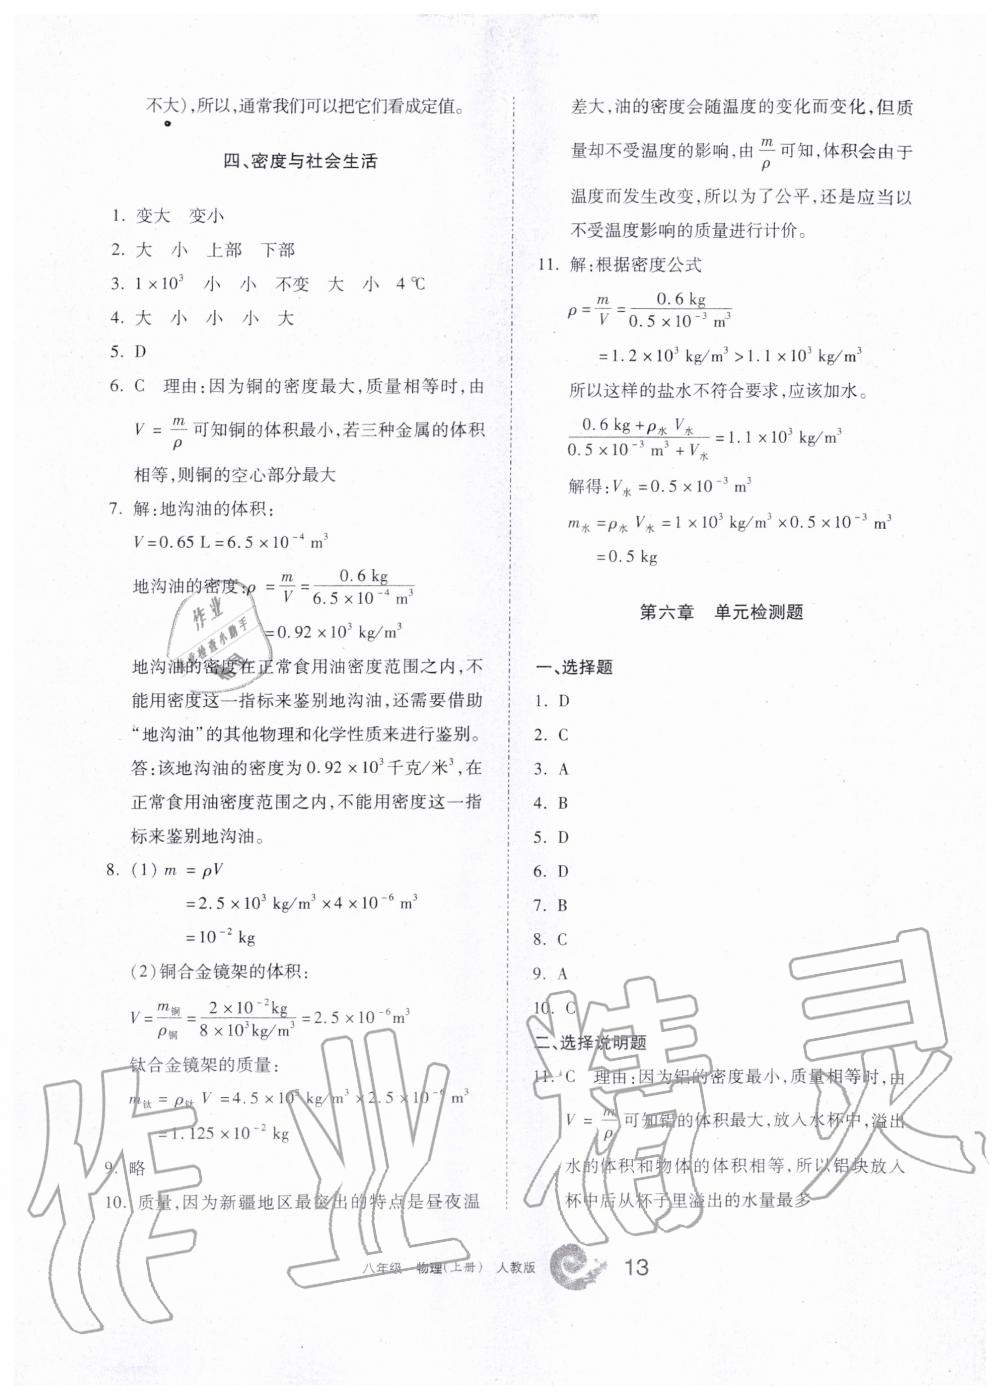 不大),所以,通常我们可以把它们看成定值。
四、密度与社会生活
1. 变大 变小
2. 大 小 上部 下部
3. 1×10³ 小 小 不变 大 小 4℃
4. 大 小 小 小 大
5. D
6. C 理由:因为铜的密度最大,质量相等时,由
V = m/ρ 可知铜的体积最小,若三种金属的体积
相等,则铜的空心部分最大
7. 解:地沟油的体积:
V=0.65 L=6.5×10⁻⁴ m³
地沟油的密度:ρ = m/V = 0.6 kg/6.5×10⁻⁴ m³
=0.92×10³ kg/m³
地沟油的密度在正常食用油密度范围之内,不
能用密度这一指标来鉴别地沟油,还需要借助
“地沟油”的其他物理和化学性质来进行鉴别。
答:该地沟油的密度为0.92×10³千克/米³,在
正常食用油密度范围之内,不能用密度这一指
标来鉴别地沟油。
8. (1) m = ρV
=2.5×10³ kg/m³×4×10⁻⁶ m³
=10⁻² kg
(2)铜合金镜架的体积:
V=m铜/ρ铜=2×10⁻²kg/8×10³kg/m³=2.5×10⁻⁶m³
钛合金镜架的质量:
m钛 = ρ钛 V =4.5×10³ kg/m³×2.5×10⁻⁶ m³
=1.125×10⁻² kg
9. 略
10. 质量,因为新疆地区最突出的特点是昼夜温
差大,油的密度会随温度的变化而变化,但质
量却不受温度的影响,由 m/ρ 可知,体积会由于
温度而发生改变,所以为了公平,还是应当以
不受温度影响的质量进行计价。
11. 解:根据密度公式
ρ = m/V = 0.6 kg/0.5×10⁻³ m³
=1.2×10³ kg/m³>1.1×10³ kg/m³
所以这样的盐水不符合要求,应该加水。
0.6 kg+ρ水 V水/0.5×10⁻³ m³+V水=1.1×10³ kg/m³
解得:V水 =0.5×10⁻³ m³
m水 =ρ水 V水 =1×10³ kg/m³×0.5×10⁻³ m³
=0.5 kg
第六章 单元检测题
一、选择题
1. D
2. C
3. A
4. B
5. D
6. D
7. B
8. C
9. A
10. C
二、选择说明题
11. C 理由:因为铝的密度最小,质量相等时,由
V = m/ρ 可知铝的体积最大,放入水杯中,溢出
水的体积和物体的体积相等,所以铝块放入
杯中后从杯子里溢出的水量最多
八年级 物理(上册) 人教版 13
作业
作业检查小助手
作业精灵